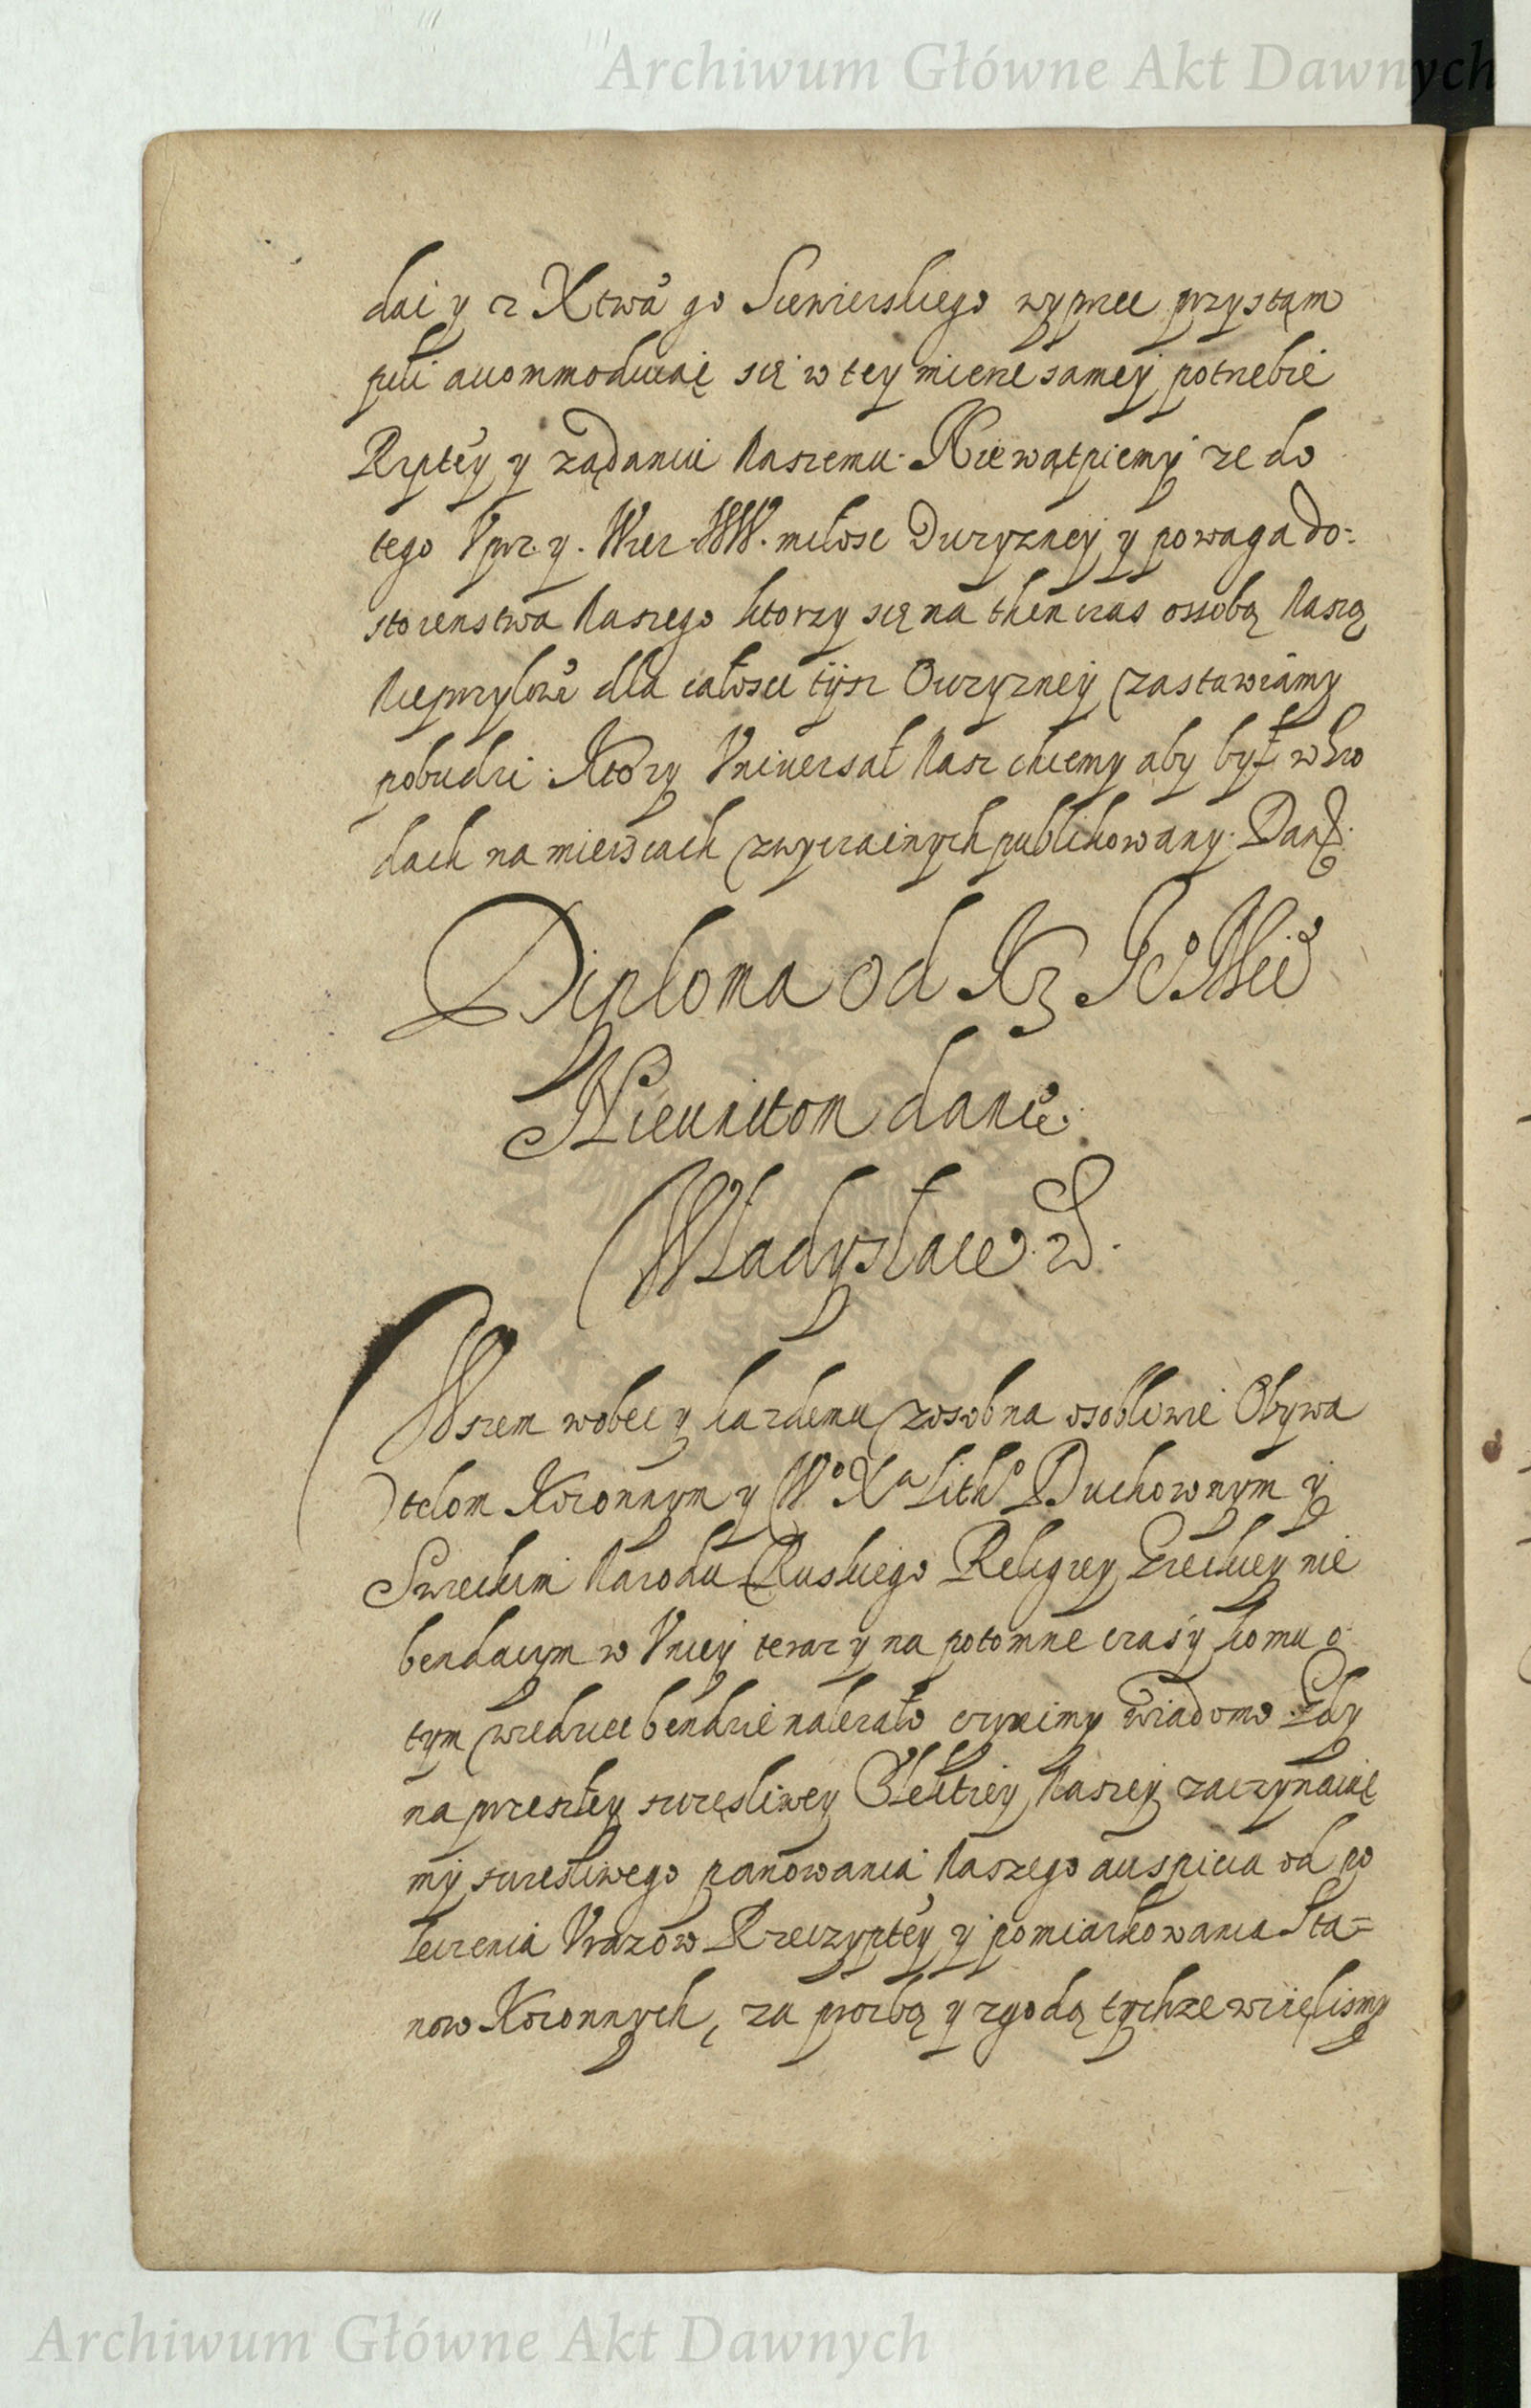 Archiwum Główne Akt Dawnych
dai y z Xtwa go Siewierskiego wyprcc przystąm
pili accommoduiąc się w tey mierze samey potrzebie
Rzptey y ządaniu Naszemu. Niewątpiemy ze do
tego Vprz. y. Wier. WW. miłosc Oyczyzney y powaga do:
stoienstwa Naszego ktorzy się na then czas ossobą Naszą
dla całosci tysz Oyczyzney zastawiamy
pobudzi. Ktory Vniuersał Nasz chcemy aby był w Gro
dach na mieiscach zwyczainych publikowany. Dan
Diploma od Kz Jº Mci
Nieunitom danie.
Władysław. 4.
Wszem wobec y kazdemu zosobna osobliwie Obywa
telom Koronnym y Wº Xª Lithº Duchownym y
Swieckim Narodu Ruskiego Religiey Greckiey nie
bendacym w Vniey teraz y na potomne czasy komu o
tym wiedziec bendzie nalezało czynimy wiadomo. Gdy
na przeszłey szczęsliwey Elektiey Naszey zaczynaiąc
my szczesliwego panowania Naszego auspicia od po
leczenia Vrazow Rzeczyptey y pomiarkowania Sta=
now Koronnych, za prozbą y zgodą tychze wzięlismy
Archiwum Główne Akt Dawnych